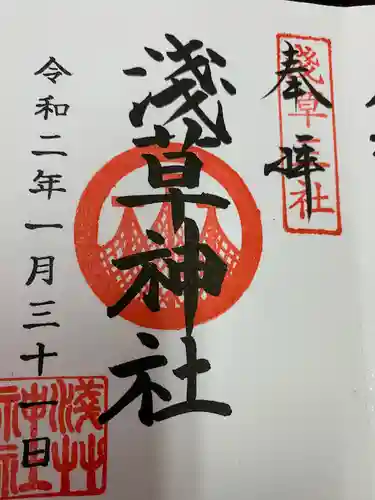 奉拝
淺草三社
淺草神社
令和二年一月三十一日
淺草神社